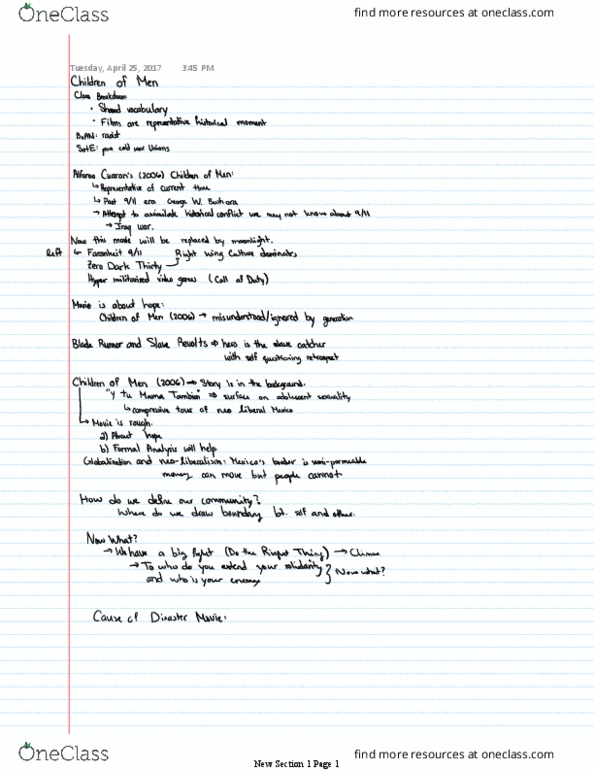 OneClass
find more resources at oneclass.com
Tuesday, April 25, 2017 3:45 PM
Children of Men
Class Breakdown:
• Shared vocabulary
• Films are representative historical moment
BoAN: racist
SotE: pro cold war Unions
Alfonso Cuaron's (2006) Children of Men:
↳ Representative of current time
↳ Post 9/11 era George W. Bush era
→ Attempt to assimilate historical conflict we may not know about 9/11
→ Iraq war.
Now this mode will be replaced by moonlight.
Left ← Farenheit 9/11 Right wing Culture dominates
Zero Dark Thirty
Hyper militarized video games (Call of Duty)
Movie is about hope:
Children of Men (2006) → misunderstood/ignored by generation
Blade Runner and Slave Revolts ⇒ hero is the slave catcher
with self questioning retrospect
Children of Men (2006) → Story is in the background.
"Y tu Mama Tambien" ⇒ surface on adolescent sexuality
↳ compressive tour of neo liberal Mexico
→ Movie is rough.
a) About hope
b) Formal Analysis will help
Globalization and neo-liberalism: Mexico's border is semi-permeable
money can move but people cannot
How do we define our community?
Where do we draw boundary bt. self and other.
Now What?
→ We have a big fight (Do the Right Thing) → Climax
→ To who do you extend your solidarity
and who is your enemy } Now what?
Cause of Disaster Movie:
OneClass
find more resources at oneclass.com
New Section 1 Page 1